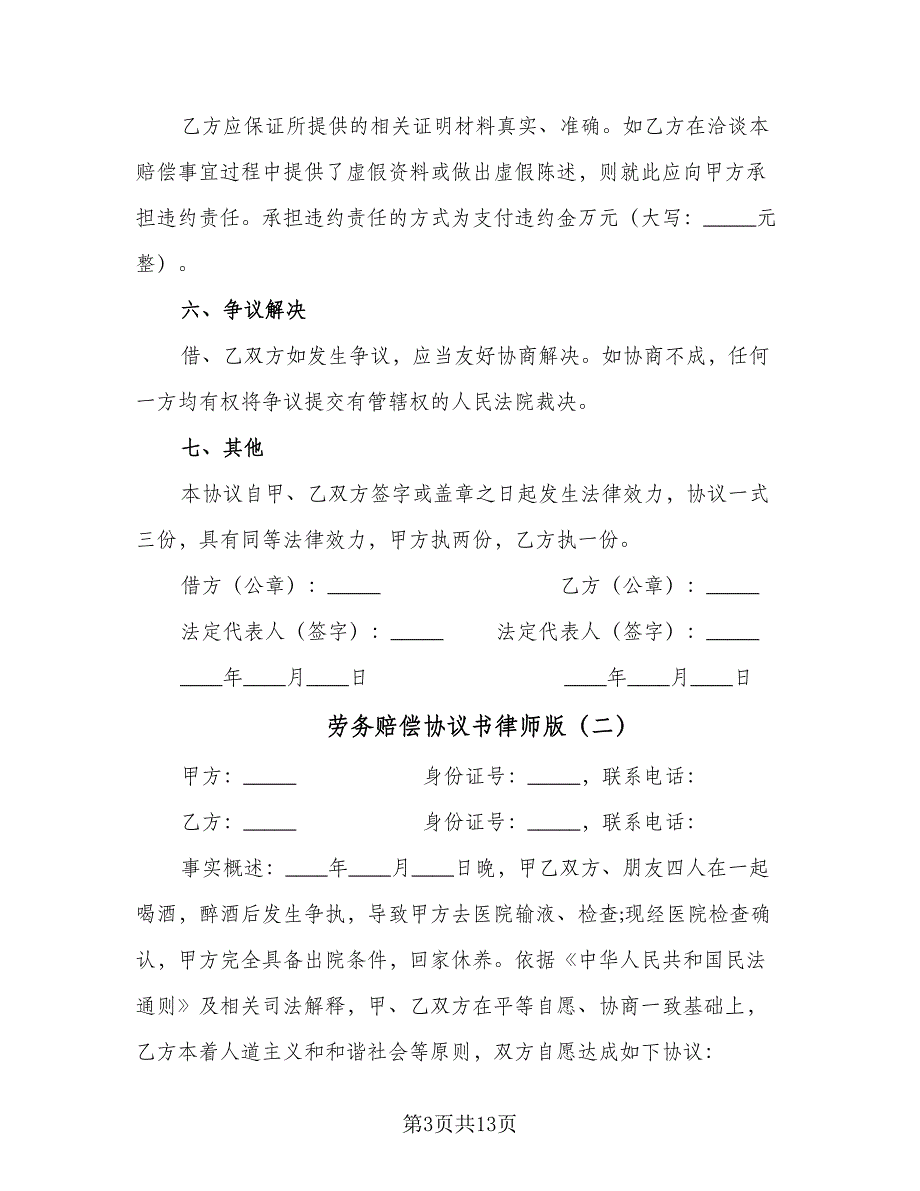 乙方应保证所提供的相关证明材料真实、准确。如乙方在洽谈本
赔偿事宜过程中提供了虚假资料或做出虚假陈述，则就此应向甲方承
担违约责任。承担违约责任的方式为支付违约金万元（大写：_____元
整）。
六、争议解决
借、乙双方如发生争议，应当友好协商解决。如协商不成，任何
一方均有权将争议提交有管辖权的人民法院裁决。
七、其他
本协议自甲、乙双方签字或盖章之日起发生法律效力，协议一式
三份，具有同等法律效力，甲方执两份，乙方执一份。
借方（公章）：_____ 乙方（公章）：_____
法定代表人（签字）：_____ 法定代表人（签字）：_____
____年____月____日 ____年____月____日
劳务赔偿协议书律师版（二）
甲方：_____ 身份证号：_____，联系电话：
乙方：_____ 身份证号：_____，联系电话：
事实概述：____年____月____日晚，甲乙双方、朋友四人在一起
喝酒，醉酒后发生争执，导致甲方去医院输液、检查;现经医院检查确
认，甲方完全具备出院条件，回家休养。依据《中华人民共和国民法
通则》及相关司法解释，甲、乙双方在平等自愿、协商一致基础上，
乙方本着人道主义和和谐社会等原则，双方自愿达成如下协议：
第3页共13页